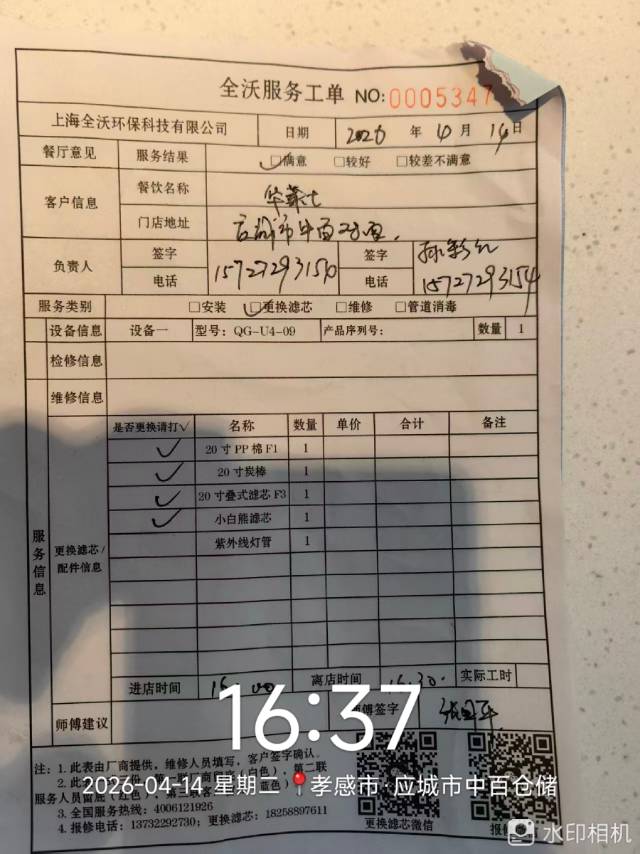 全沃服务工单 NO:0005347
上海全沃环保科技有限公司 日期 2026 年 4 月 14 日
餐厅意见 服务结果 ☑满意 □较好 □较差不满意
客户信息 餐饮名称 华莱士
门店地址 应城市中百
负责人 签字 签字 孙彩红
电话 15727293150 电话 15727293154
服务类别 □安装 ☑更换滤芯 □维修 □管道消毒
设备信息 设备一 型号: QG-U4-09 产品序列号: 数量 1
检修信息
维修信息
服务信息
更换滤芯/配件信息
是否更换请打√ 名称 数量 单价 合计 备注
✓ 20寸PP棉F1 1
✓ 20寸炭棒 1
✓ 20寸叠式滤芯F3 1
✓ 小白熊滤芯 1
紫外线灯管 1
进店时间 16:00 离店时间 16:30 实际工时
师傅建议 师傅签字
注: 1. 此表由厂商提供, 维修人员填写, 客户签字确认。
3. 全国服务热线: 4006121926
4. 报修电话: 13732292730; 更换滤芯: 18258897611
更换滤芯微信
16:37
2026-04-14 星期二 孝感市·应城市中百仓储
水印相机